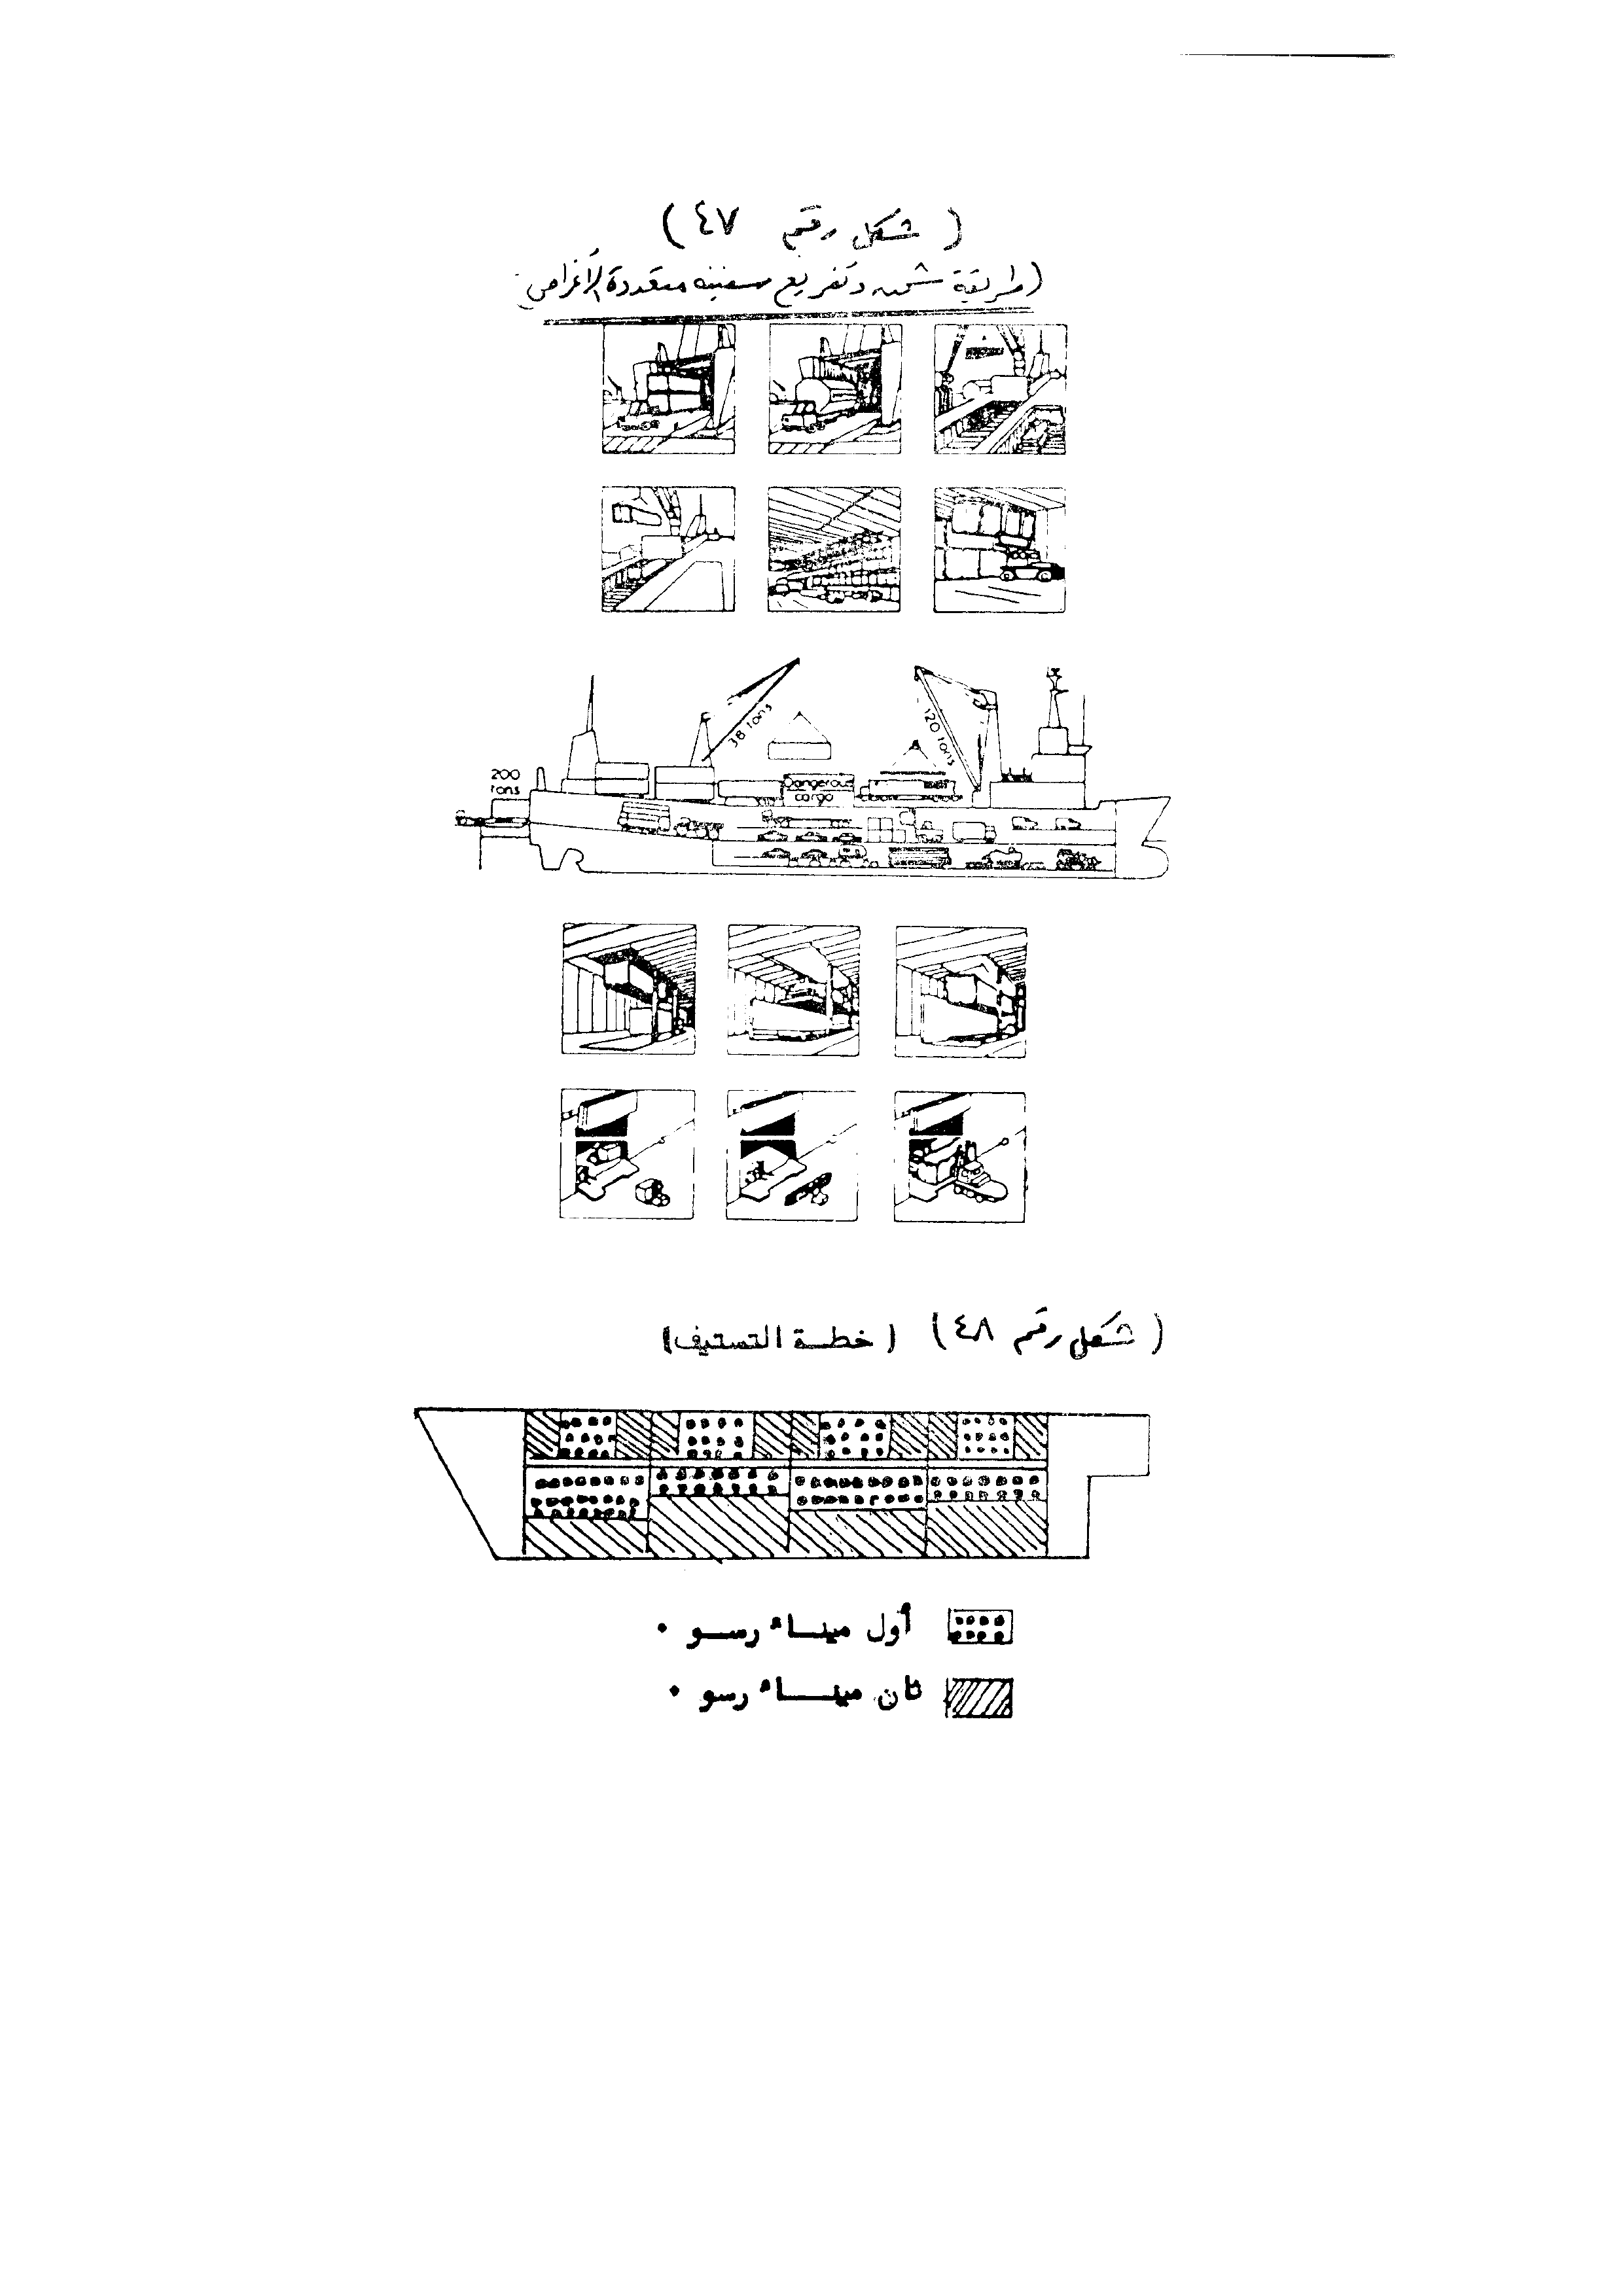 ( شكل رقم ٤٧ )
( طريقة شحن وتفريغ سفينه متعددة الأغراض )
38 tons
120 tons
200
tons
Dangerous
cargo
( شكل رقم ٤٨ ) ( خطـة التستيف )
أول مينـاء رسـو .
ثان مينـاء رسو .